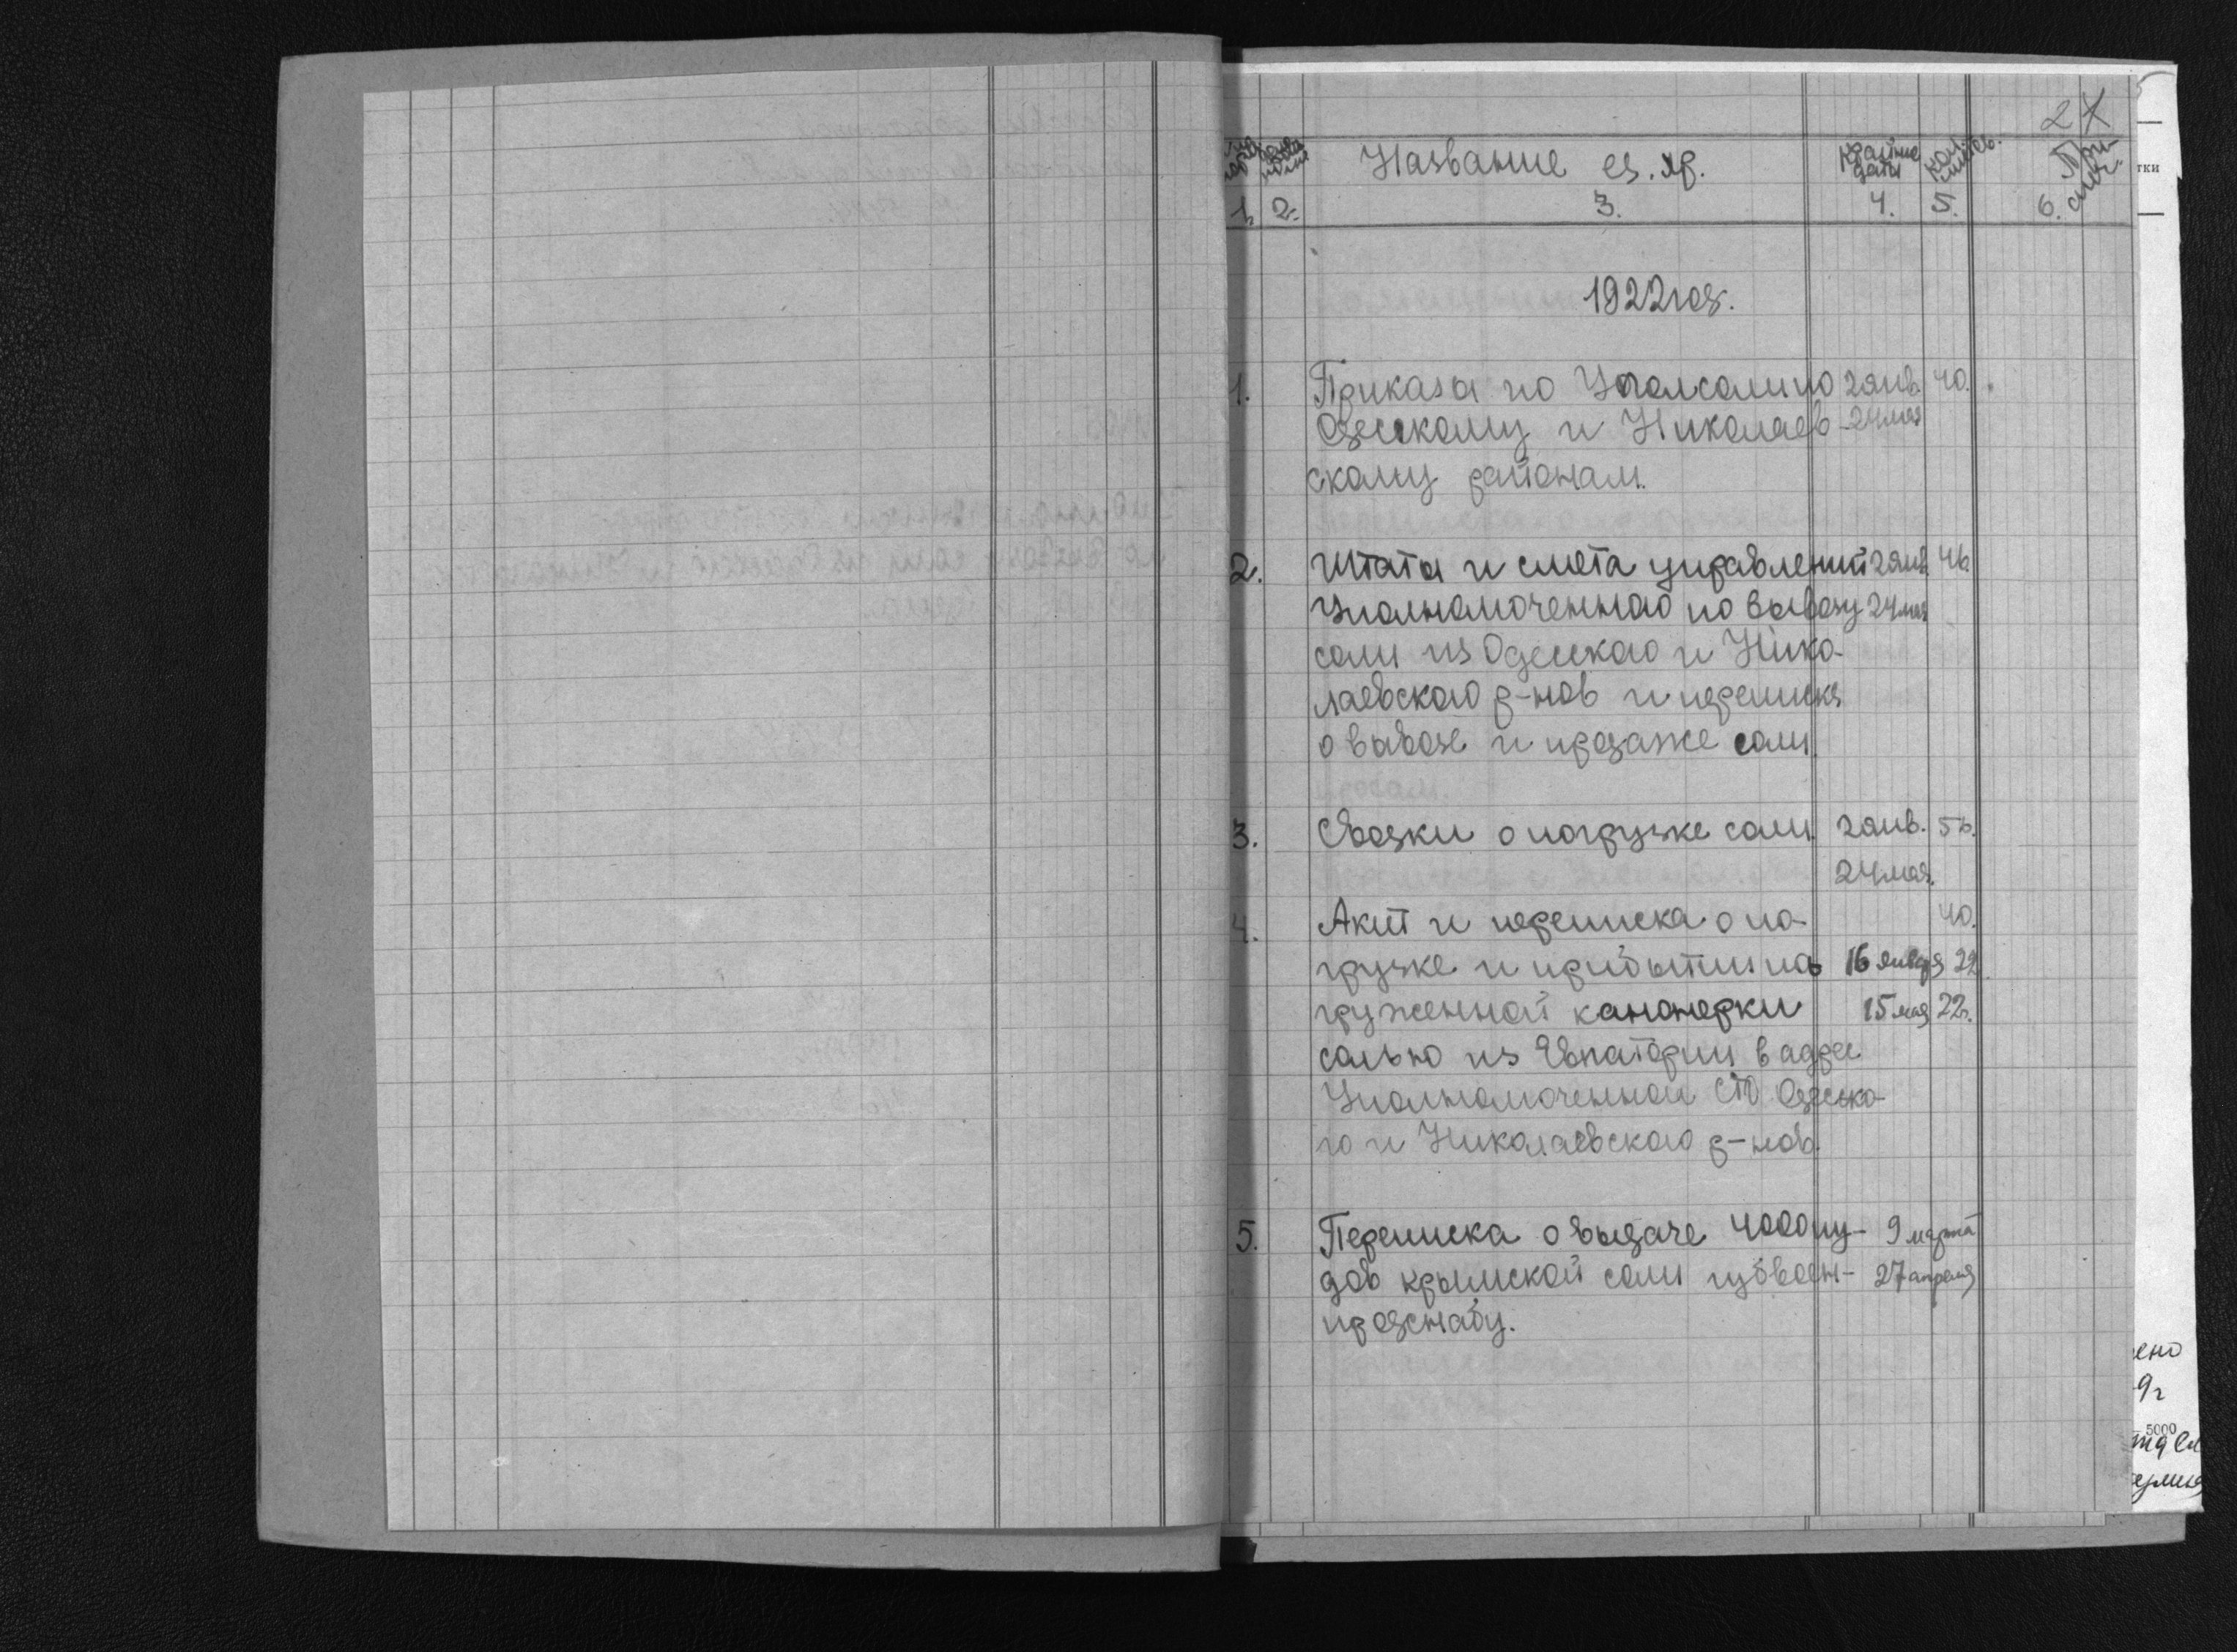 2
Название ед. хр.
Крайние даты
Кол. листов.
Примеч.
1. 2. 3. 4. 5. 6.
1922 год.
1. Приказы по Уполсоли по 2 янв. 40.
Одесскому и Николаев- 24 мая
скому районам.
2. Штаты и смета управлений 2 янв. 46.
Уполномоченного по вывозу 24 мая
соли из Одесского и Нико-
лаевского р-нов и переписка
о вывозе и продаже соли.
3. Сводки о погрузке соли. 2 янв. 56.
24 мая.
4. Акт и переписка о по- 40.
грузке и прибытии на 16 января 22
груженной канонерки 15 мая 22г.
солью из Евпатории в адрес
Уполномоченной СТО Одесско-
го и Николаевского р-нов.
5. Переписка о выдаче 4000 пу- 9 марта
дов крымской соли губвоен- 27 апреля
продснабу.
тки
ено
9г
5000